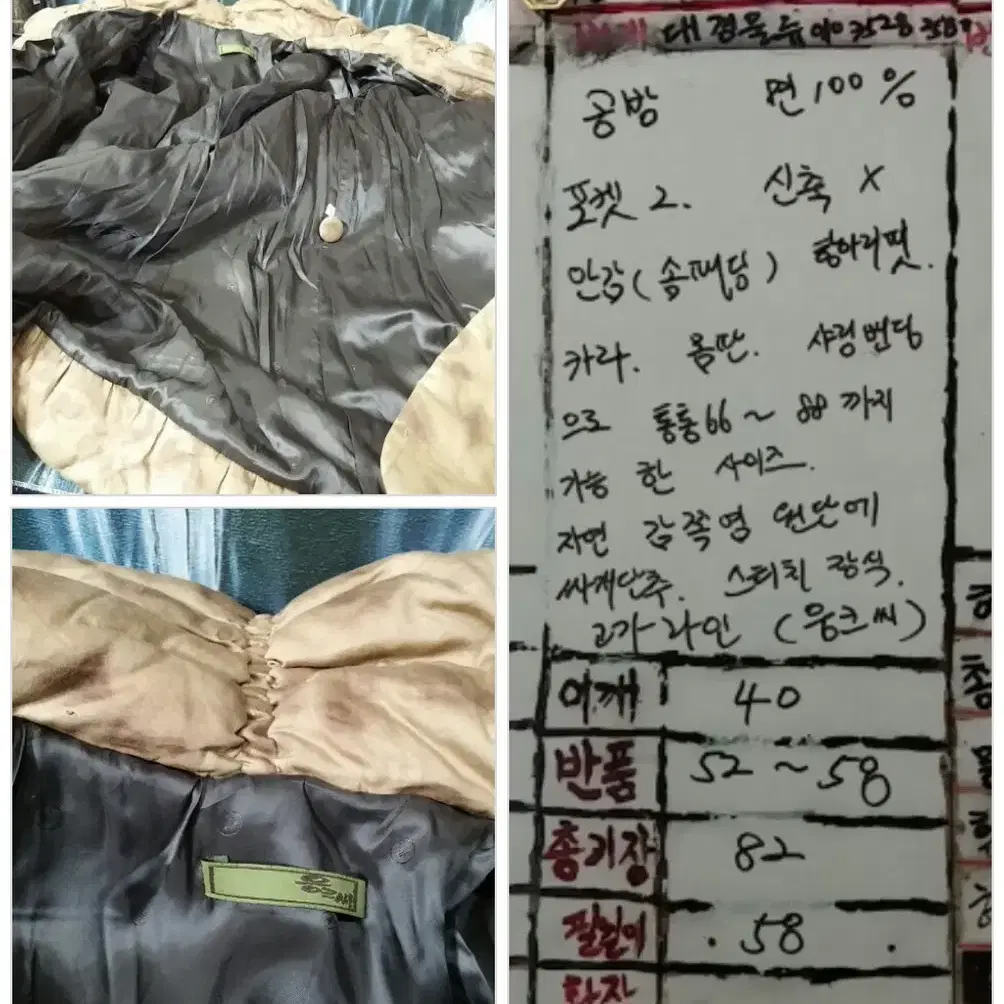 대경물류
공방 면100%
포켓 2. 신축 X
안감(솜패딩) 항아리핏.
카라. 몸판. 샤링밴딩
으로 통통66~88까지
가능한 사이즈.
자연 감쪽염 원단에
싸개단추. 스티치 장식.
고가라인 (웅크씨)
어깨 40
반품 52~58
총기장 82
팔길이 .58.